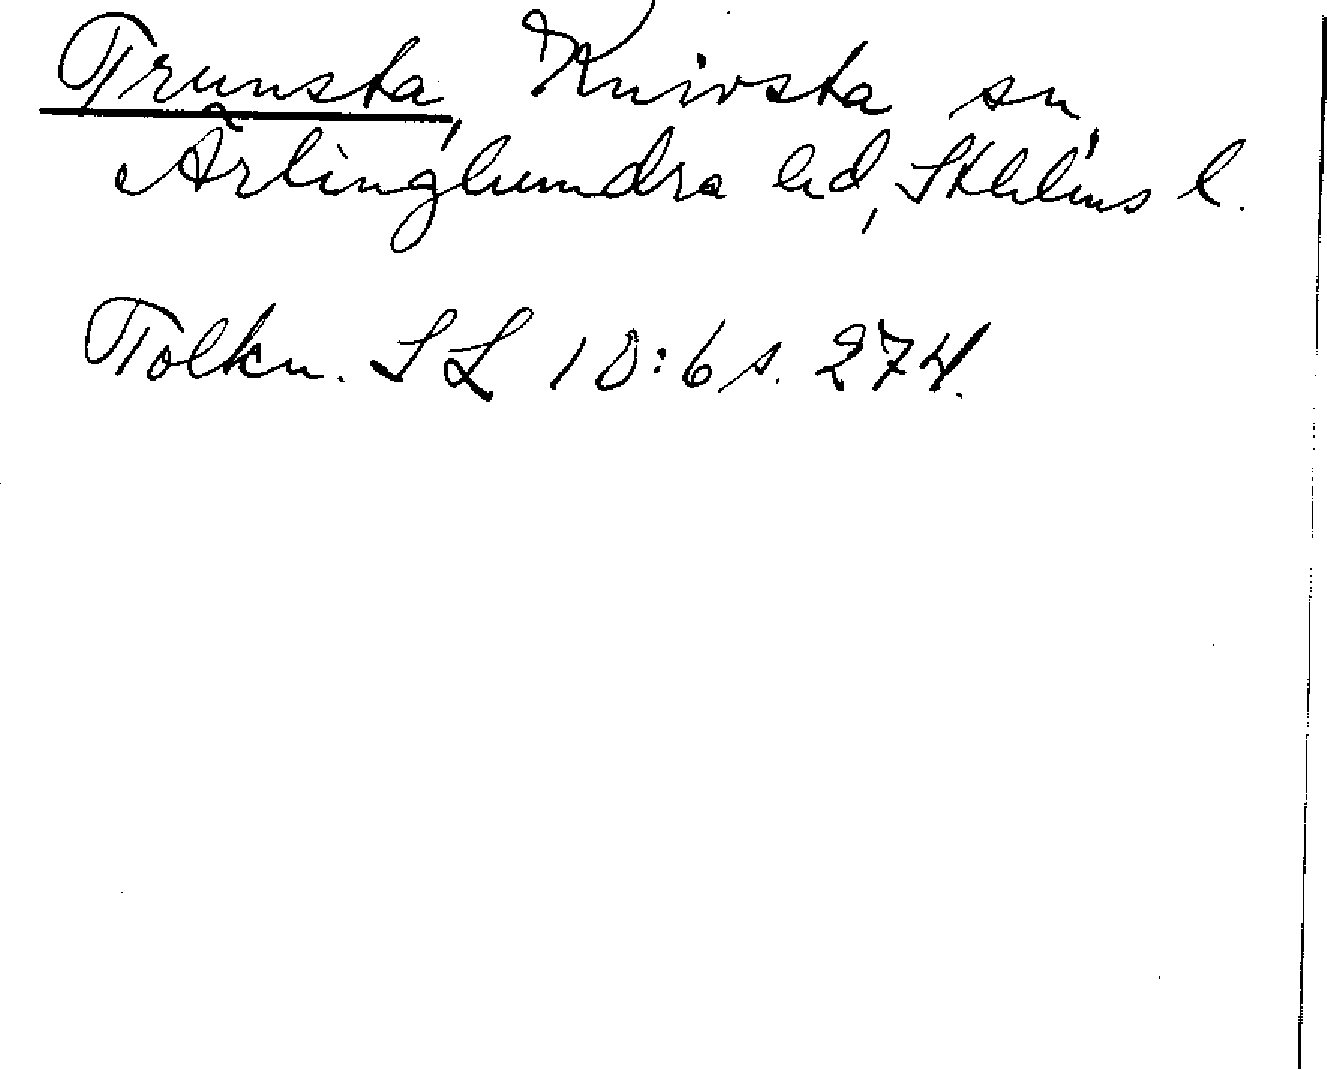 Trunsta, Knivsta sn,
Ärlinghundra hd, Sthlms l.
Tolkn. SL 10:6 s. 274.